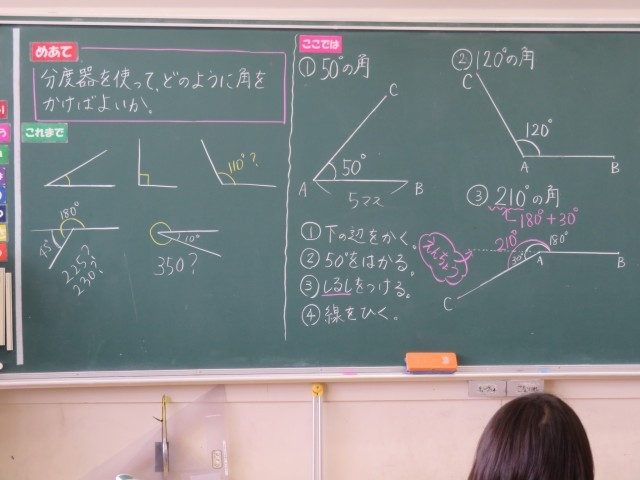 めあて
分度器を使って、どのように角を
かけばよいか。
これまで
110°?
180°
45°
225?
230?
10°
350?
ここでは
① 50°の角
C
50°
A
B
5マス
① 下の辺をかく。
② 50°をはかる。
③ しるしをつける。
④ 線をひく。
② 120°の角
C
120°
A
B
③ 210°の角
180°+30°
えんちょう
210°
180°
30°
A
B
C